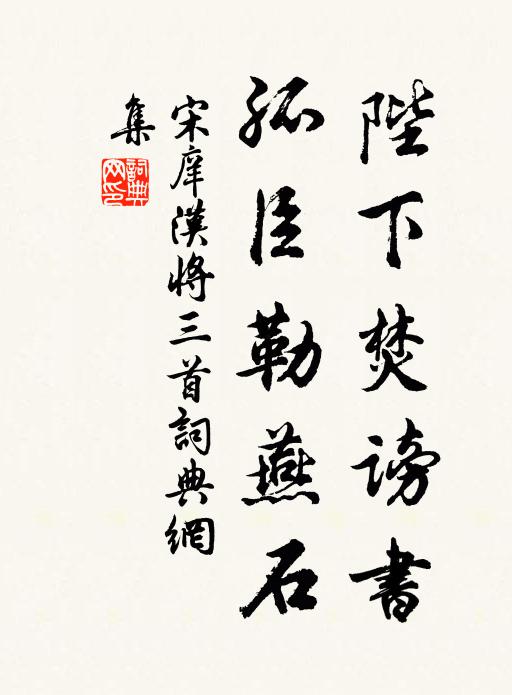 陛下焚謗書
孤臣勒燕石
宋庠漢將三首詞典網
集
詞典網印